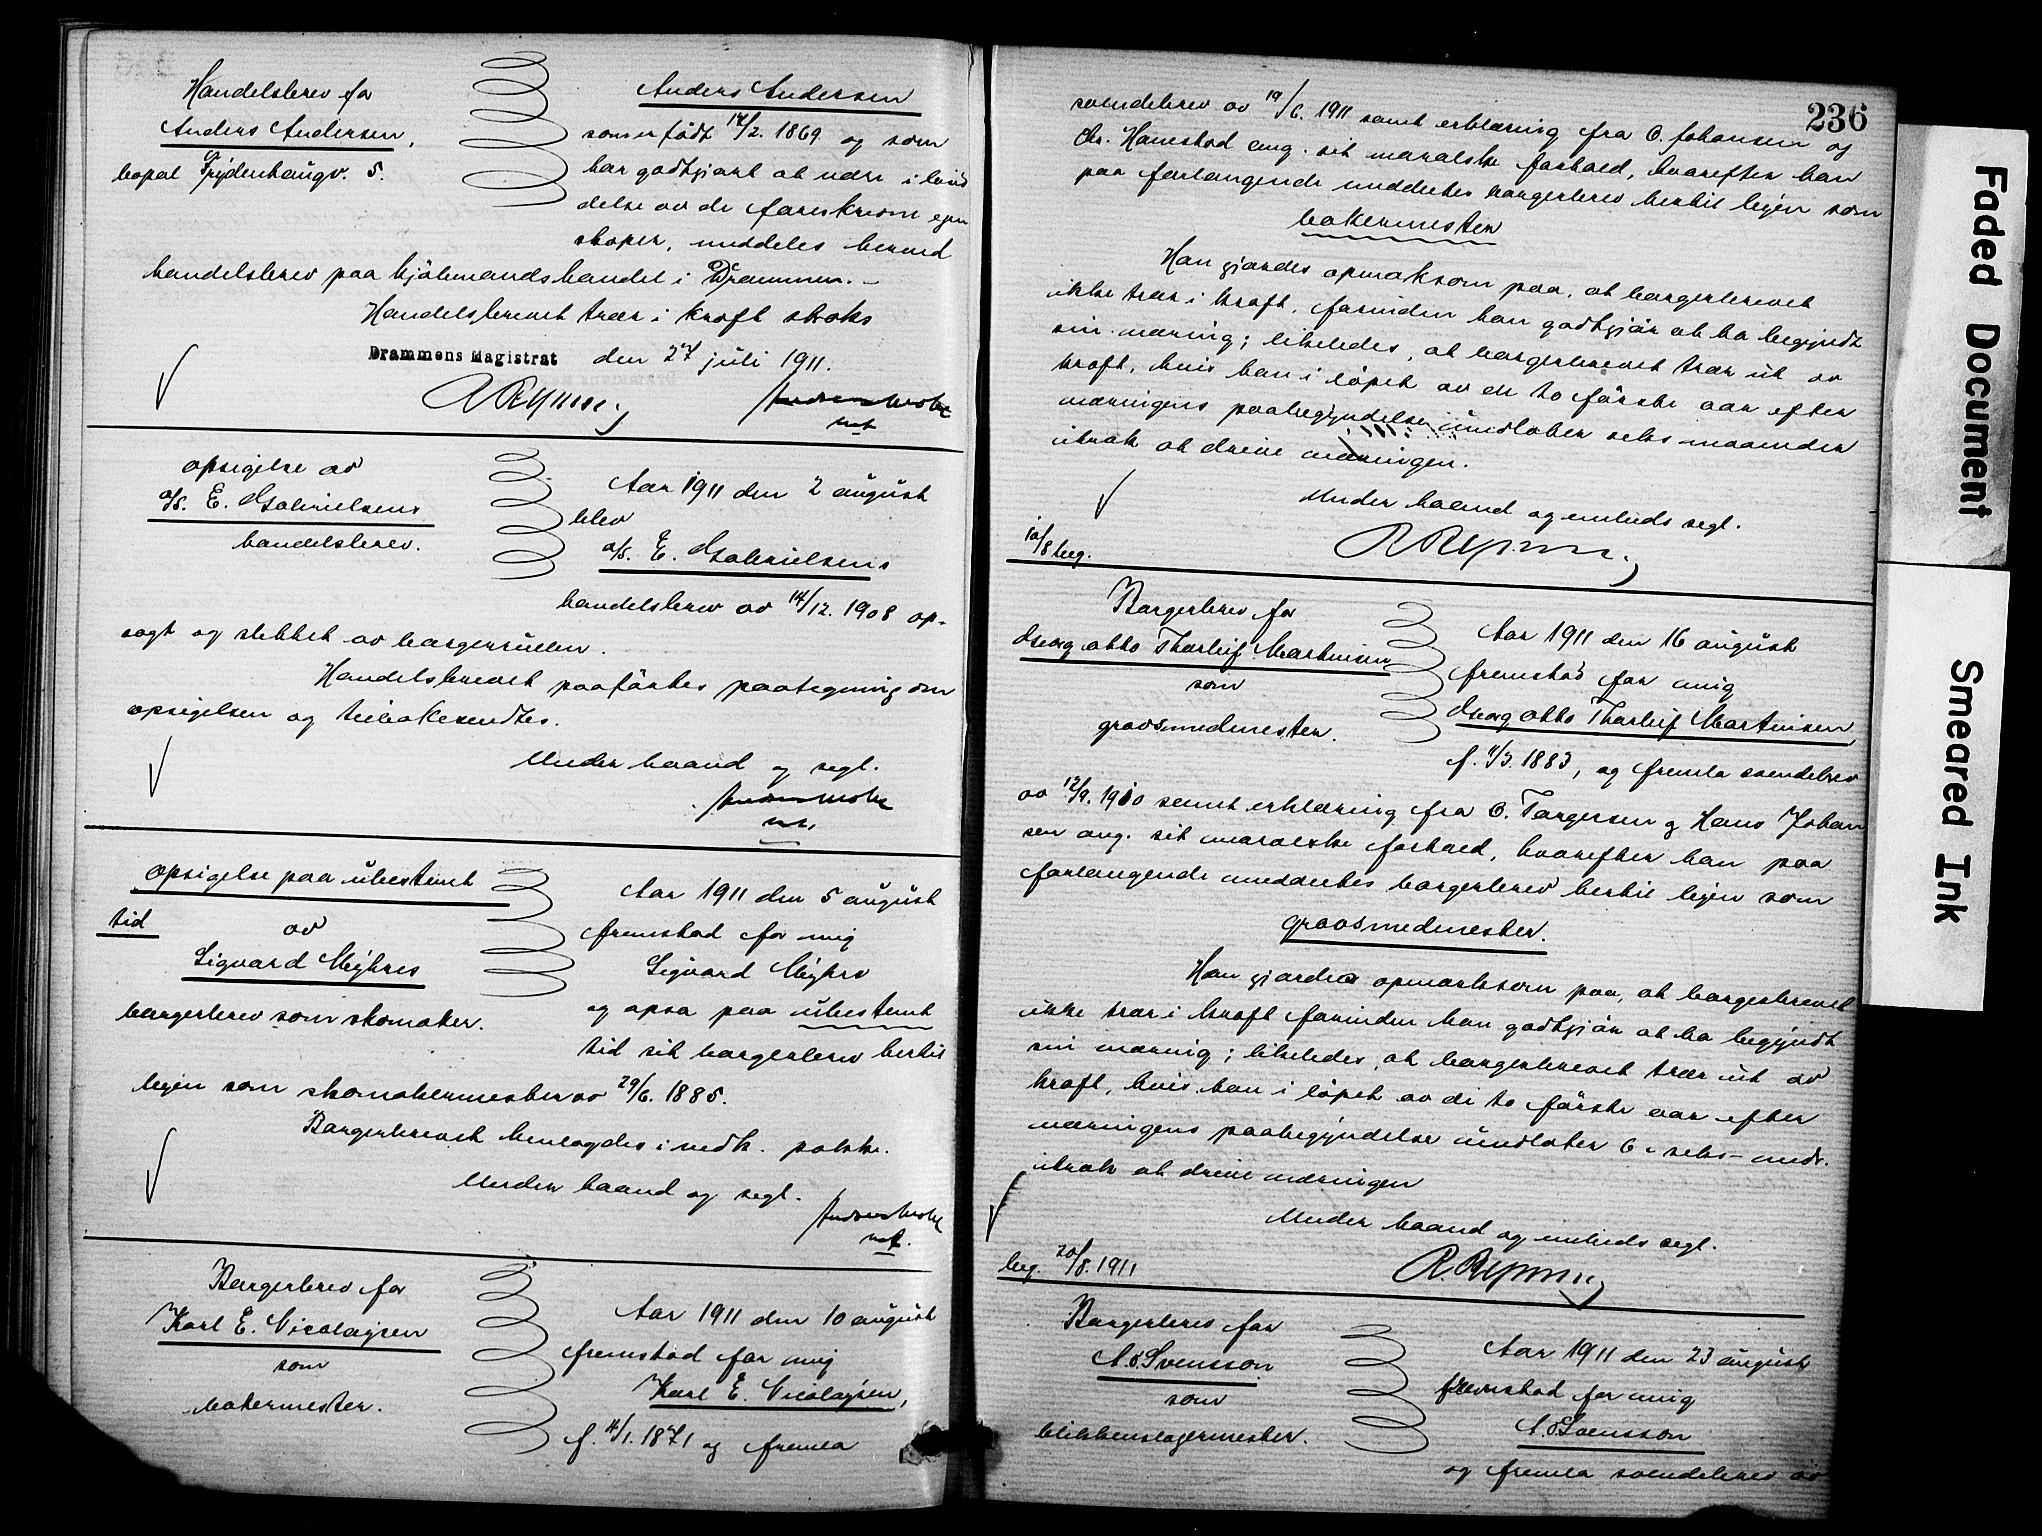 Handelsbrev for
Anders Andersen,
bopæl Frydenhaugv. 5.
Anders Andersen
som er født 17/2. 1869 og som
har godtgjort at være i besid
delse av de foreskrevne egen
skaper, meddeles herved
handelsbrev paa kjøbmandshandel i Drammen. –
Handelsbrevet trær i kraft straks
Drammens Magistrat den 27 juli 1911.
opsigelse av
a/s. E. Gabrielsens
handelsbrev.
Aar 1911 den 2 august
blev
a/s. E. Gabrielsens
handelsbrev av 14/12. 1908 op-
sagt og slettet av borgerrullen.
Handelsbrevet paaførtes paategning om
opsigelsen og tilbakesendtes.
Under haand og segl.
opsigelse paa ubestemt
tid
av
Sigvard Myhres
borgerbrev som skomaker.
Aar 1911 den 5 august
fremstod for mig
Sigvard Myhre
og opsa paa ubestemt
tid sit borgerbrev hertil
byen som skomakermester av 29/6. 1885.
Borgerbrevet henlagdes i vedk. pakke.
Under haand og segl.
Borgerbrev for
Karl E. Nicolaysen
som
bakermester.
Aar 1911 den 10 august
fremstod for mig
Karl E. Nicolaysen,
f. 4/1. 1871 og fremla
236
svendebrev av 19/6. 1911 samt erklæring fra O. Johansen og
Chr. Hanestad ang. sit moralske forhold, hvorefter han
paa forlangende meddeltes borgerbrev hertil byen som
bakermester
Han gjordes opmerksom paa, at borgerbrevet
ikke trær i kraft, forinden han godtgjør at ha begyndt
sin næring; likeledes, at borgerbrevet trær ut av
kraft, hvis han i løpet av de to første aar efter
næringens paabegyndelse undlater seks maaneder
itrak at drive næringen.
Under haand og embeds segl.
10/8 beg.
Borgerbrev for
Georg Otto Thorleif Martinsen
som
grovsmedmester.
Aar 1911 den 16 august
fremstod for mig
Georg Otto Thorleif Martinsen
f. 4/3. 1883, og fremla svendebrev
av 12/9. 1910 samt erklæring fra O. Torgersen og Hans Johan
sen ang. sit moralske forhold, hvorefter han paa
forlangende meddeltes borgerbrev hertil byen som
grovsmedmester.
Han gjordes opmerksom paa, at borgerbrevet
ikke trær i kraft forinden han godtgjør at ha begyndt
sin næring; likeledes, at borgerbrevet trær ut av
kraft, hvis han i løpet av de to første aar efter
næringens paabegyndelse undlater 6 – seks – mndr.
itrak at drive næringen
Under haand og embeds segl.
beg. 20/8. 1911
Borgerbrev for
A. O Svensson
som
blikkenslagermester.
Aar 1911 den 23 august
fremstod for mig
A. O Svensson
og fremla svendebrev av
Faded Document
Smeared Ink